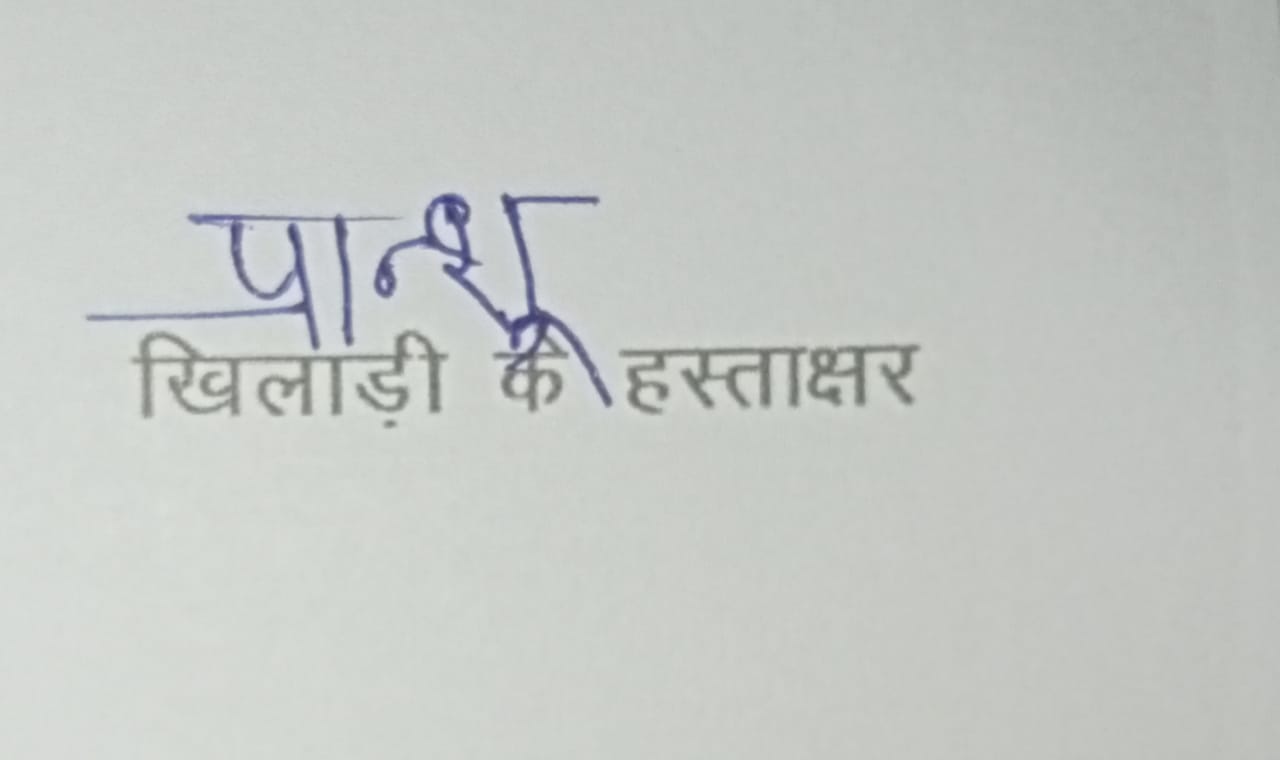 पान्शू
खिलाड़ी के हस्ताक्षर